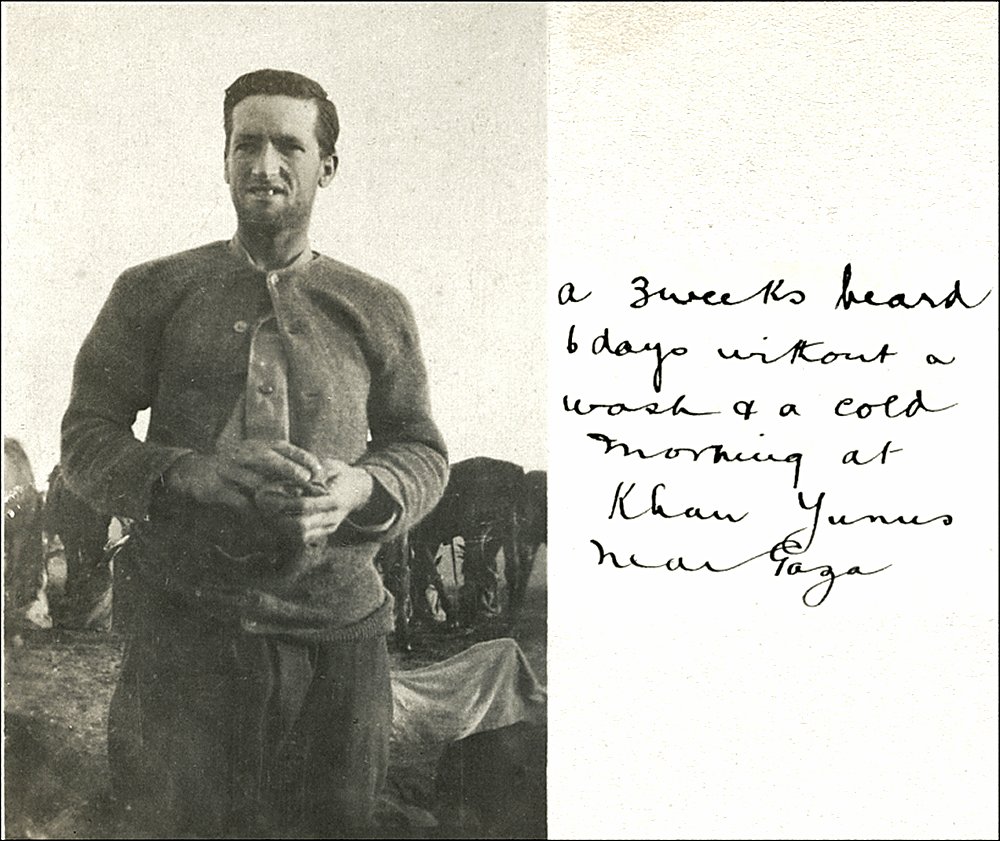 a 3 weeks beard
6 days without a
wash & a cold
morning at
Khan Yunus
near Gaza